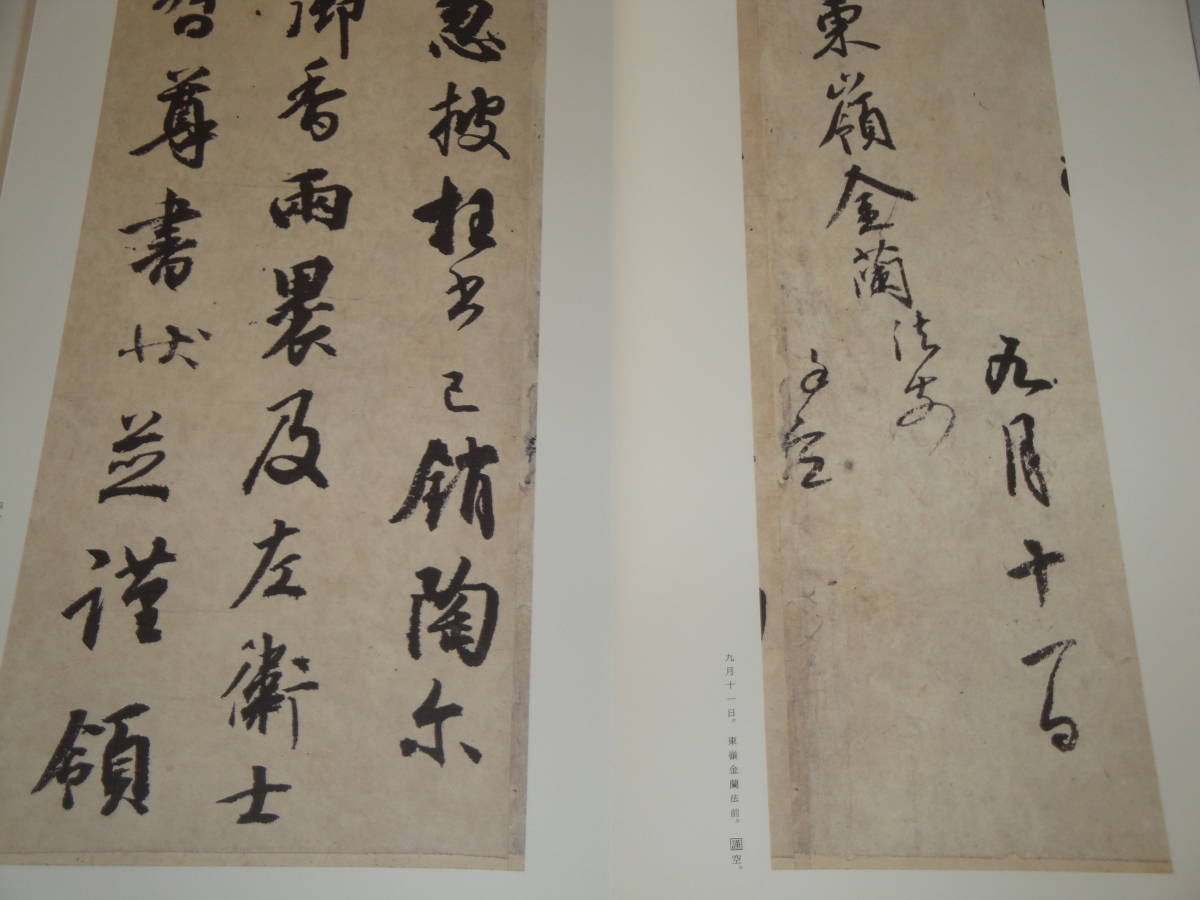 九月十一日
東嶺金蘭法前
謹空
九月十一日。東嶺金蘭法前。謹空。
忽披枉書已銷陶尓
御香兩裹及左衛士
督尊書状並謹領